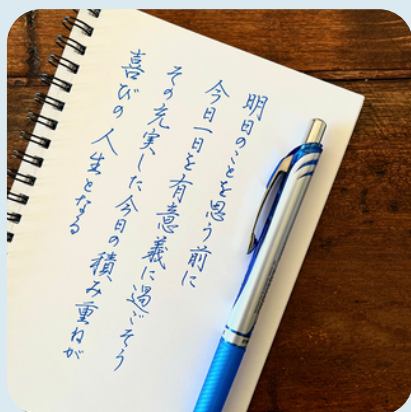 明日のことを思う前に
今日一日を有意義に過ごそう
その充実した今日の積み重ねが
喜びの人生となる